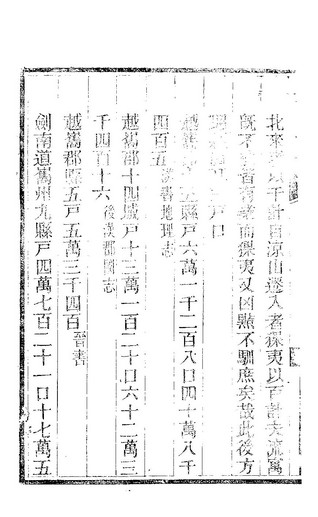 北來者以千計自涼山遷入者猓夷以百計夫流寓
既不著者有者而猓夷又凶黠不馴庶矣哉此後方
戶口
越巂郡十五縣戶六萬一千二百八口四十萬八千
四百五漢書地理志
越巂郡十四城戶十三萬一百二十口六十二萬三
千四百十六後漢郡國志
越巂郡縣五戶五萬三千四百晉書
劍南道巂州九縣戶四萬七百二十一口十七萬五